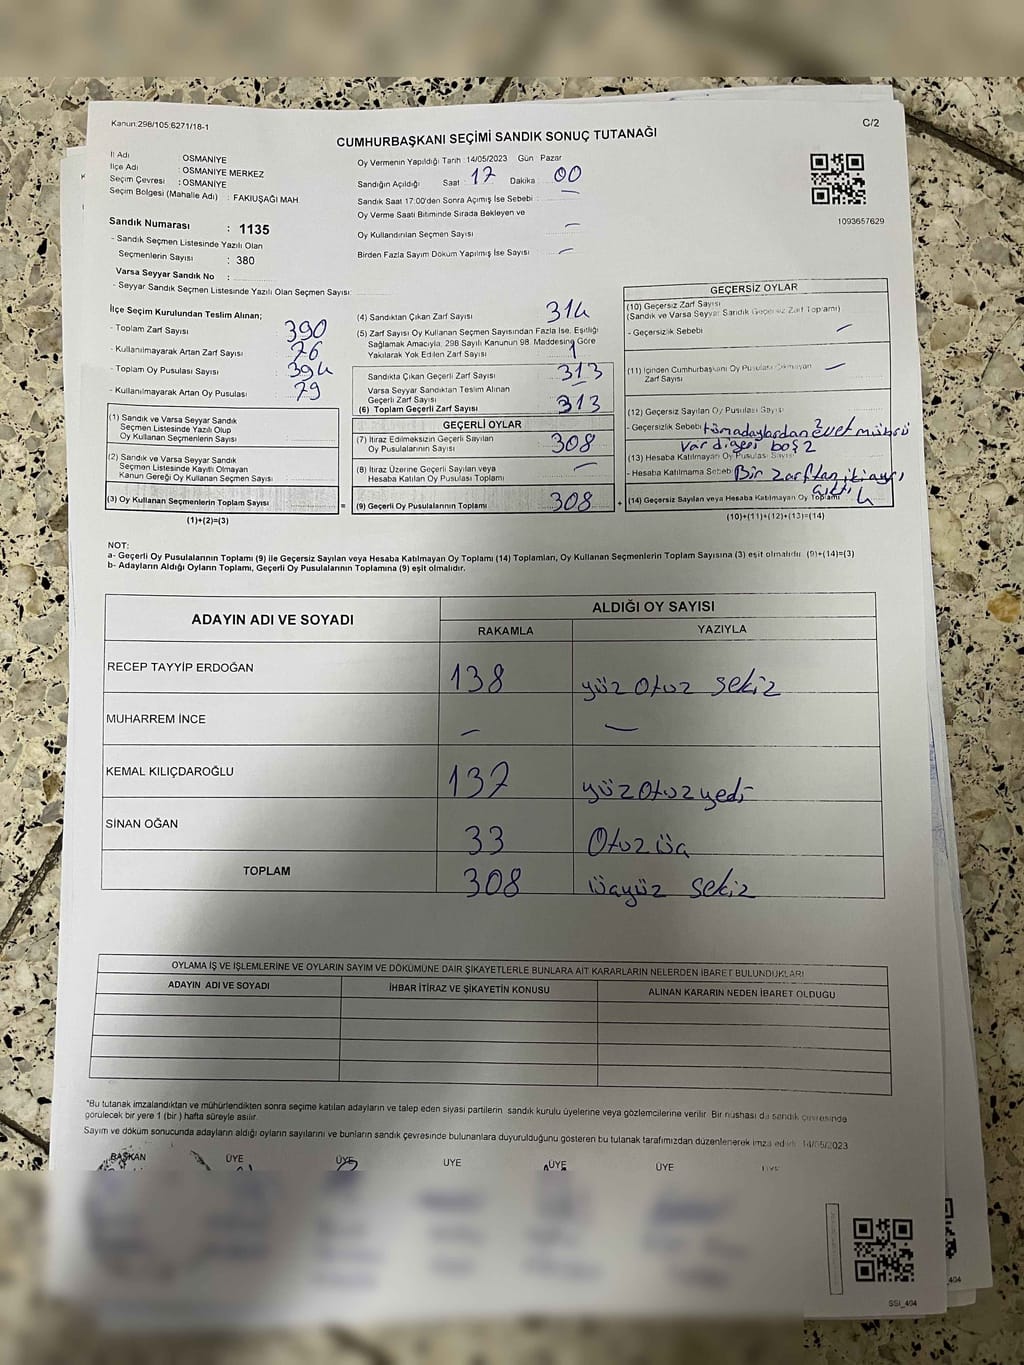 Kanun:298/105.6271/18-1
C/2
CUMHURBAŞKANI SEÇİMİ SANDIK SONUÇ TUTANAĞI
İl Adı : OSMANİYE
İlçe Adı : OSMANİYE MERKEZ
Seçim Çevresi : OSMANİYE
Seçim Bölgesi (Mahalle Adı) : FAKIUŞAĞI MAH
Sandık Numarası : 1135
- Sandık Seçmen Listesinde Yazılı Olan
Seçmenlerin Sayısı : 380
Varsa Seyyar Sandık No :
- Seyyar Sandık Seçmen Listesinde Yazılı Olan Seçmen Sayısı:
Oy Vermenin Yapıldığı Tarih :14/05/2023 Gün Pazar
Sandığın Açıldığı Saat : 17 Dakika : 00
Sandık Saat 17:00'den Sonra Açılmış İse Sebebi : —
Oy Verme Saati Bitiminde Sırada Bekleyen ve
Oy Kullandırılan Seçmen Sayısı —
Birden Fazla Sayım Döküm Yapılmış İse Sayısı —
1093657629
İlçe Seçim Kurulundan Teslim Alınan;
- Toplam Zarf Sayısı 390
- Kullanılmayarak Artan Zarf Sayısı 76
- Toplam Oy Pusulası Sayısı 394
- Kullanılmayarak Artan Oy Pusulası 79
(1) Sandık ve Varsa Seyyar Sandık
Seçmen Listesinde Yazılı Olup
Oy Kullanan Seçmenlerin Sayısı
(2) Sandık ve Varsa Seyyar Sandık
Seçmen Listesinde Kayıtlı Olmayan
Kanun Gereği Oy Kullanan Seçmen Sayısı
(3) Oy Kullanan Seçmenlerin Toplam Sayısı
(1)+(2)=(3)
(4) Sandıktan Çıkan Zarf Sayısı 314
(5) Zarf Sayısı Oy Kullanan Seçmen Sayısından Fazla İse, Eşitliği
Sağlamak Amacıyla, 298 Sayılı Kanunun 98. Maddesine Göre
Yakılarak Yok Edilen Zarf Sayısı 1
Sandıkta Çıkan Geçerli Zarf Sayısı 313
Varsa Seyyar Sandıktan Teslim Alınan
Geçerli Zarf Sayısı —
(6) Toplam Geçerli Zarf Sayısı 313
GEÇERLİ OYLAR
(7) İtiraz Edilmeksizin Geçerli Sayılan
Oy Pusulalarının Sayısı 308
(8) İtiraz Üzerine Geçerli Sayılan veya
Hesaba Katılan Oy Pusulası Toplamı —
= (9) Geçerli Oy Pusulalarının Toplamı 308 +
GEÇERSİZ OYLAR
(10) Geçersiz Zarf Sayısı
(Sandık ve Varsa Seyyar Sandık Geçersiz Zarf Toplamı)
- Geçersizlik Sebebi —
(11) İçinden Cumhurbaşkanı Oy Pusulası Çıkmayan
Zarf Sayısı —
(12) Geçersiz Sayılan Oy Pusulası Sayısı
- Geçersizlik Sebebi tüm adaylardan 2 evet mührü
var diğeri boş 2
(13) Hesaba Katılmayan Oy Pusulası Sayısı
- Hesaba Katılmama Sebebi Bir zarftan iki ayrı
(14) Geçersiz Sayılan veya Hesaba Katılmayan Oy Toplamı 4
(10)+(11)+(12)+(13)=(14)
NOT:
a- Geçerli Oy Pusulalarının Toplamı (9) ile Geçersiz Sayılan veya Hesaba Katılmayan Oy Toplamı (14) Toplamları, Oy Kullanan Seçmenlerin Toplam Sayısına (3) eşit olmalıdır. (9)+(14)=(3)
b- Adayların Aldığı Oyların Toplamı, Geçerli Oy Pusulalarının Toplamına (9) eşit olmalıdır.
ADAYIN ADI VE SOYADI
ALDIĞI OY SAYISI
RAKAMLA YAZIYLA
RECEP TAYYİP ERDOĞAN 138 yüz otuz sekiz
MUHARREM İNCE — —
KEMAL KILIÇDAROĞLU 137 yüz otuz yedi
SİNAN OĞAN 33 Otuz üç
TOPLAM 308 üçyüz sekiz
OYLAMA İŞ VE İŞLEMLERİNE VE OYLARIN SAYIM VE DÖKÜMÜNE DAİR ŞİKAYETLERLE BUNLARA AİT KARARLARIN NELERDEN İBARET BULUNDUKLARI
ADAYIN ADI VE SOYADI İHBAR İTİRAZ VE ŞİKAYETİN KONUSU ALINAN KARARIN NEDEN İBARET OLDUĞU
"Bu tutanak imzalandıktan ve mühürlendikten sonra seçime katılan adayların ve talep eden siyasi partilerin sandık kurulu üyelerine veya gözlemcilerine verilir. Bir nüshası da sandık çevresinde
görülecek bir yere 1 (bir ) hafta süreyle asılır.
Sayım ve döküm sonucunda adayların aldığı oyların sayılarını ve bunların sandık çevresinde bulunanlara duyurulduğunu gösteren bu tutanak tarafımızdan düzenlenerek imza edildi. 14/05/2023
BAŞKAN ÜYE ÜYE ÜYE ÜYE ÜYE ÜYE
SSI_404
_404